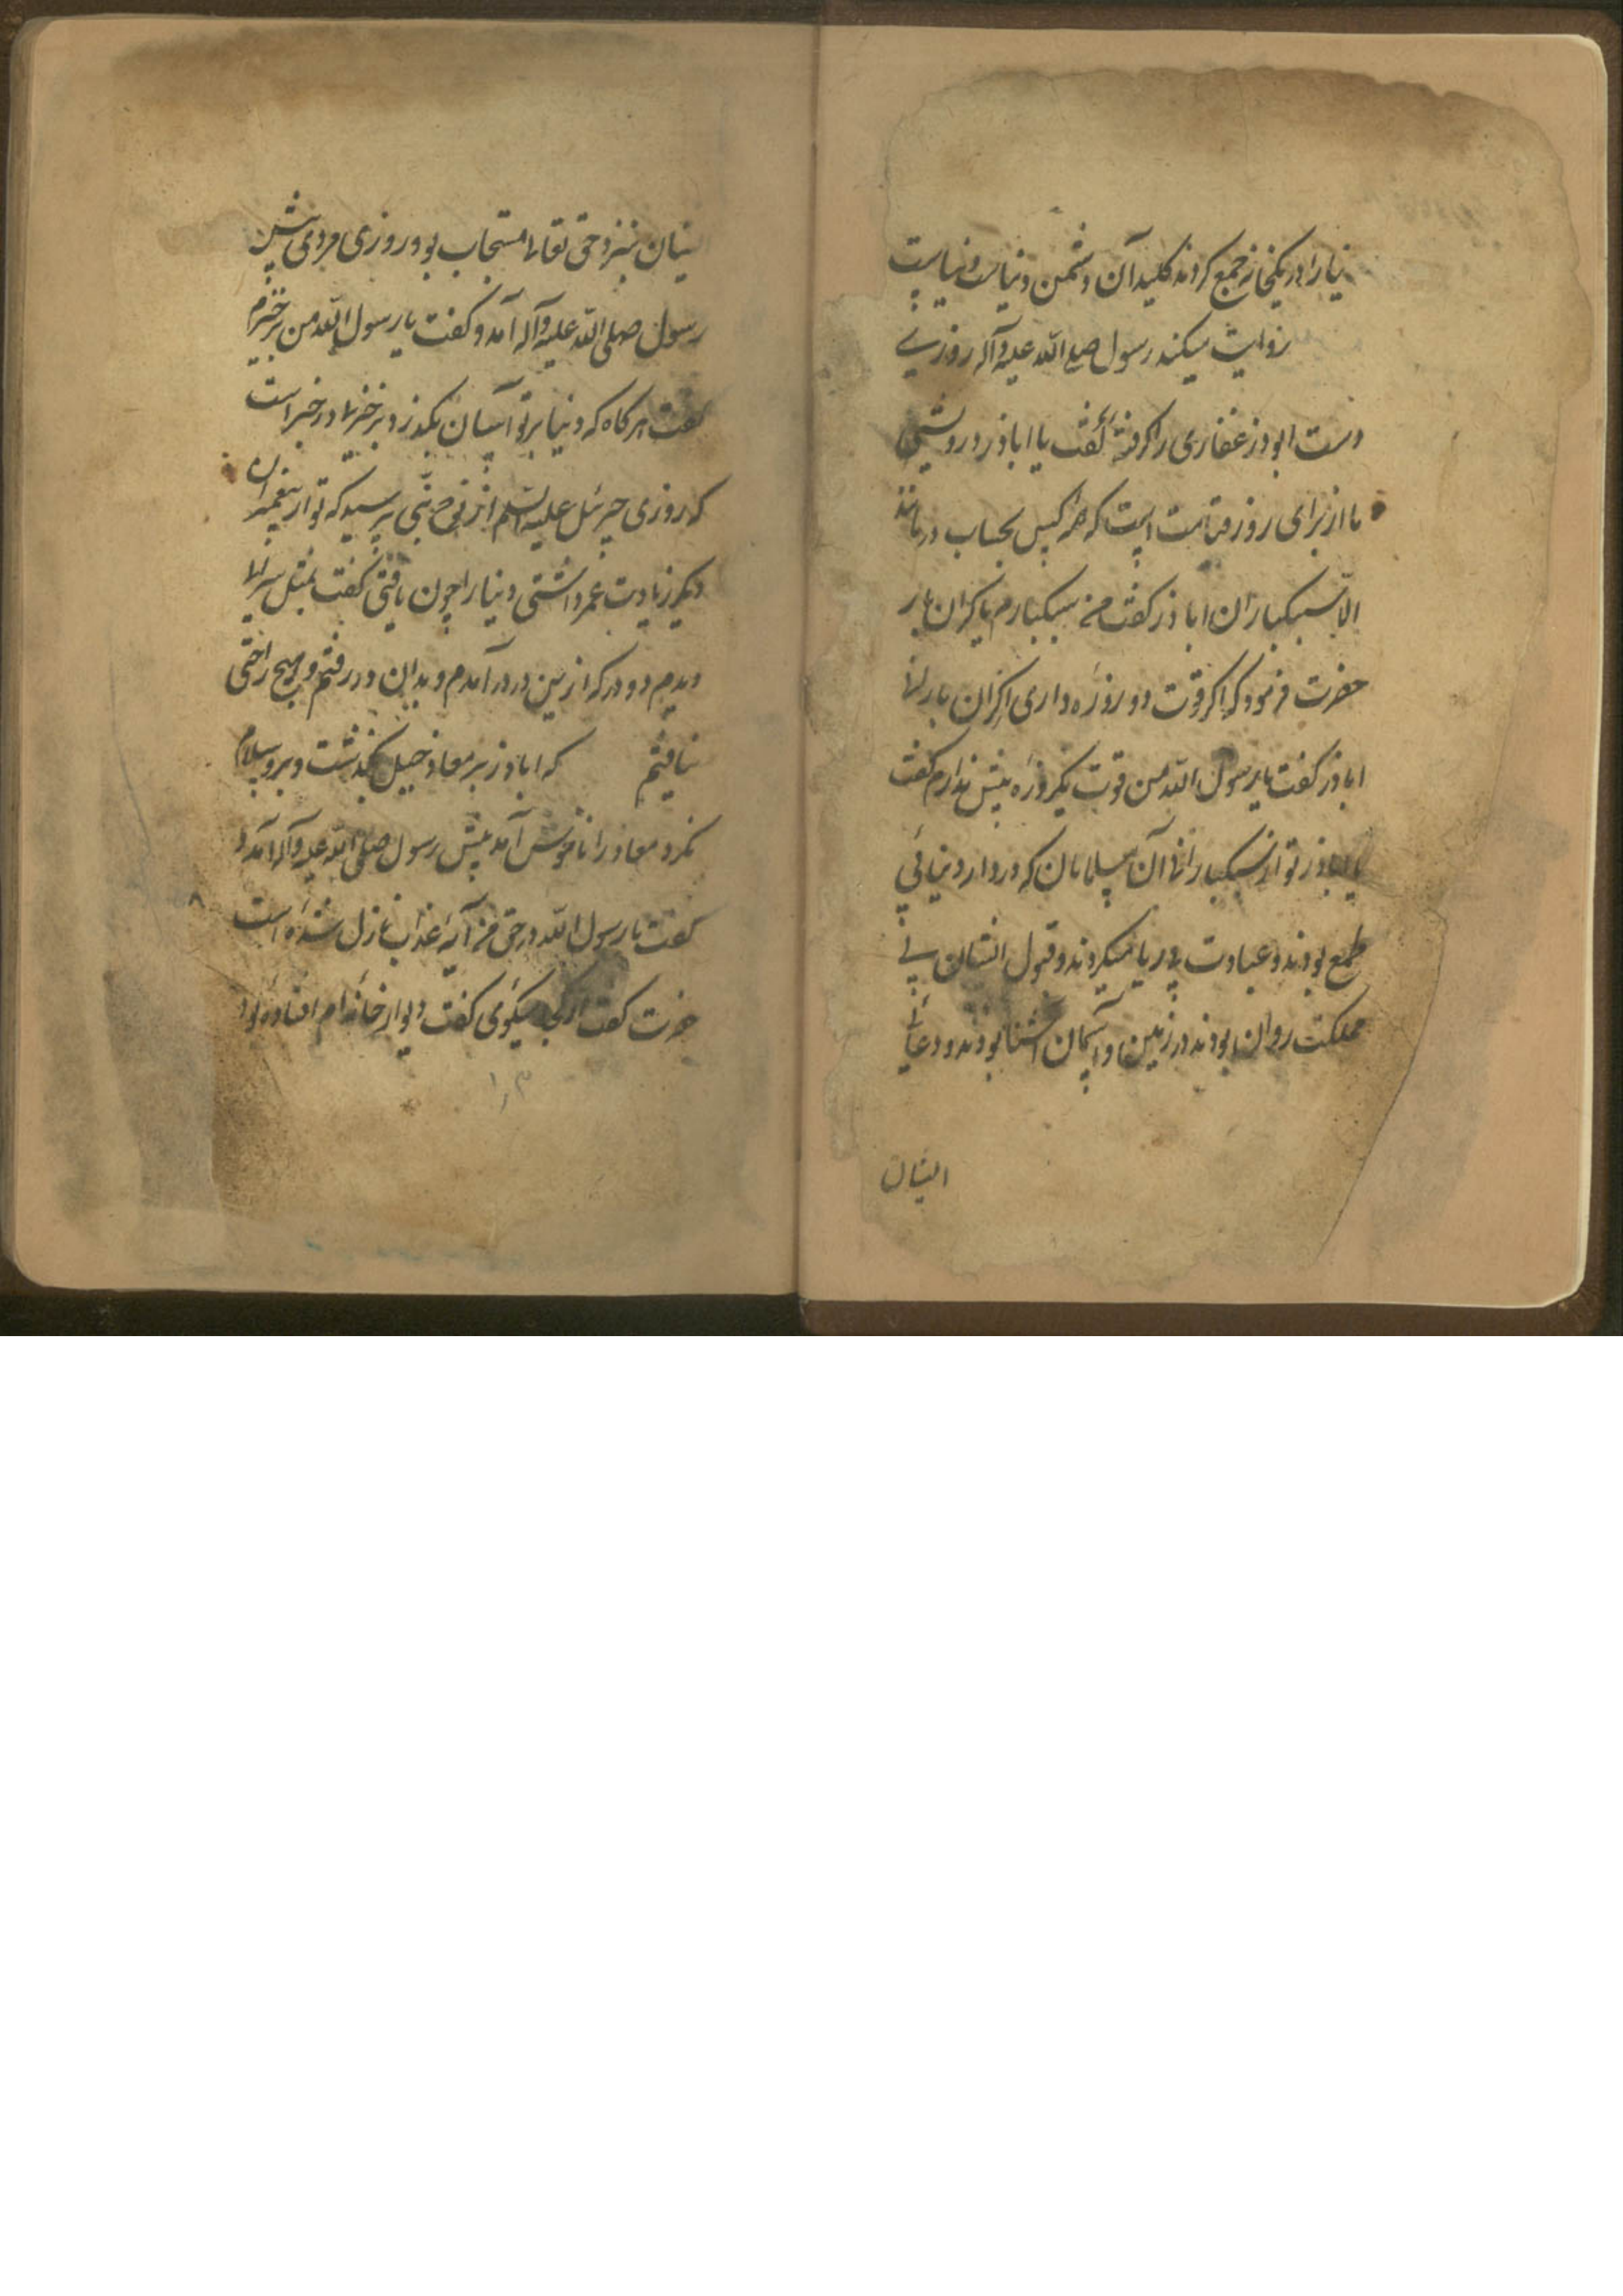 نیا را در یکخانه جمع کردند کلید آن دشمن دنیاست
روایت میکند رسول صلی الله علیه وآله روزی
دست ابوذر غفاری را گرفته گفت یا اباذر درویشی
ما از برای روز قیامت است که هر کس بحساب درماند
الا سبکباران اباذر گفت من سبکبارم یا گران بار
حضرت فرمود که اگر قوت دو روزه داری از گران بارانی
اباذر گفت یا رسول الله من قوت یکروزه بیش ندارم گفت
یا اباذر تو از سبکبارانی آن مسلمانان که در دار دنیا بی
طمع بودند و عبادت بی ریا میکردند و قبول ایشان بی
مملکت روان بودند در زمین و آسمان آشنا بودند و دعای
ایشان
یشان نزد حق تعالی مستجاب بود روزی مردی پیش
رسول صلی الله علیه وآله آمد و گفت یا رسول الله من بر خیرم
گفت هر گاه که دنیا بر تو آسان بگذرد بر خیری در خبر است
که روزی جبرئیل علیه السلم از نوح نبی پرسید که تو از پیغمبران
دیگر زیادت عمر داشتی دنیا را چون یافتی گفت بمثل سرای
دیدم دو در که ازین در در آمدم و بدان در رفتم و هیچ راحتی
نیافتم که اباذر بر معاذ جبل بگذشت و برو سلام
نکرد معاذ را ناخوش آمد پیش رسول صلی الله علیه وآله آمد و
گفت یا رسول الله در حق من آیه عذاب نازل شده است
حضرت گفت از کجا میگوی گفت دیوار خانه ام افتاده بود